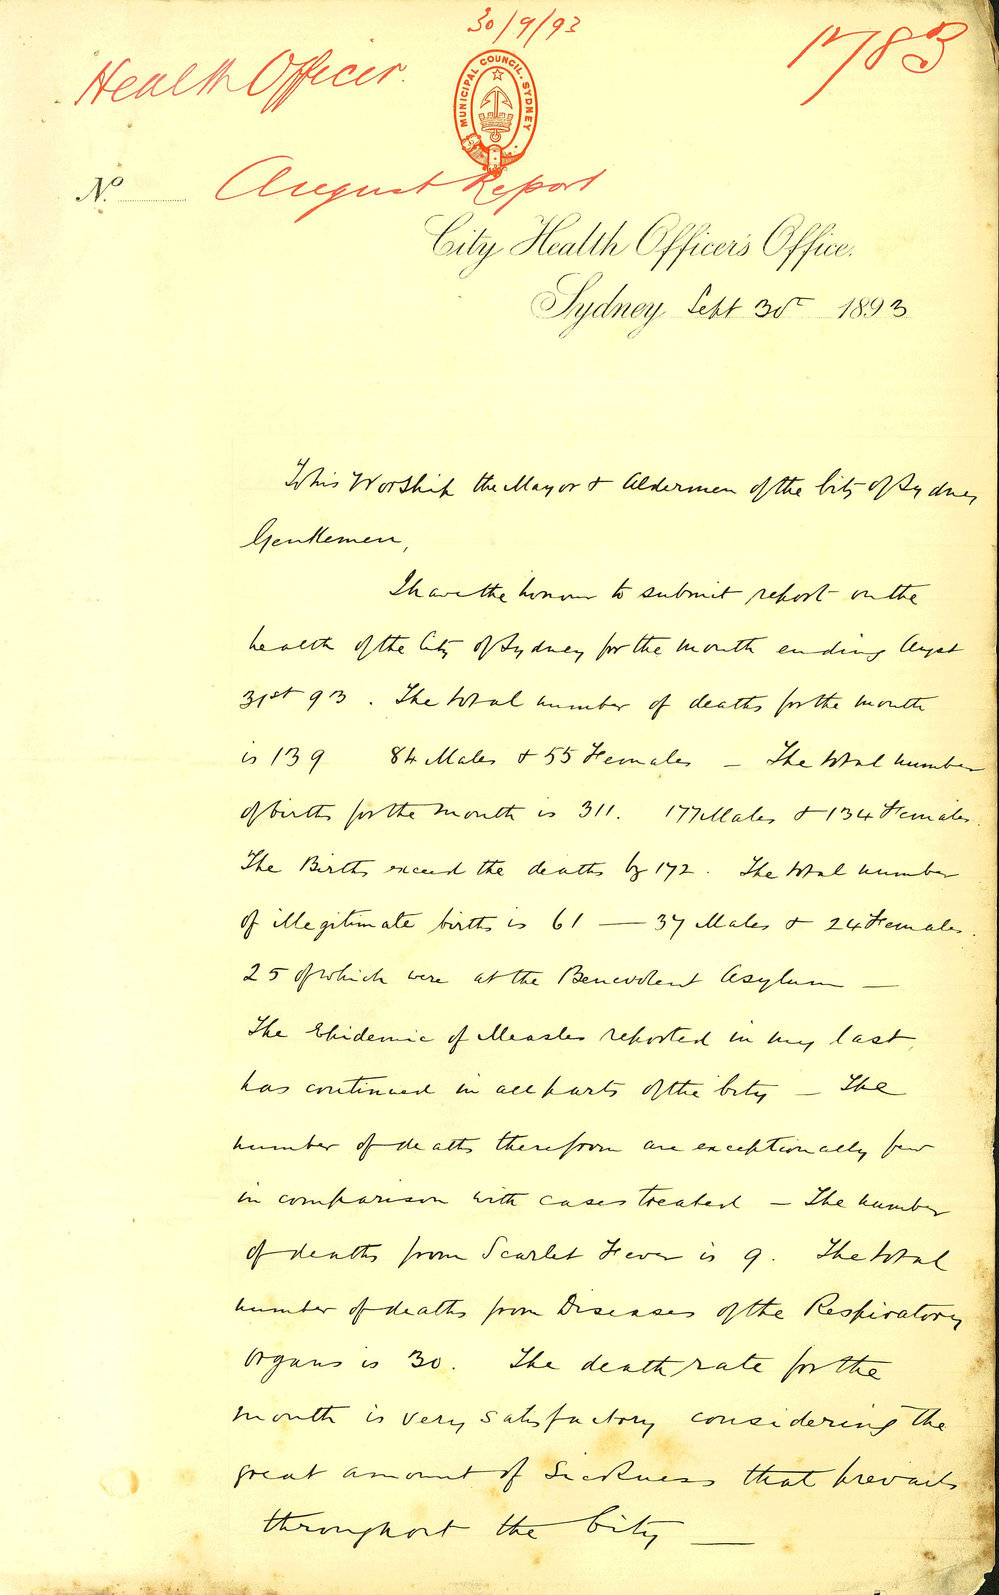 30/9/93
1783
Health Officer.
MUNICIPAL COUNCIL. SYDNEY
No
August Report
City Health Officer's Office.
Sydney Sept 30th 1893
To his Worship the Mayor & Aldermen of the City of Sydney
Gentlemen,
I have the honour to submit report on the
health of the City of Sydney for the month ending Augst
31st 93. The total number of deaths for the month
is 139 84 Males & 55 Females – The total number
of births for the month is 311. 177 Males & 134 Females.
The Births exceed the deaths by 172. The total number
of illegitimate births is 61 — 37 Males & 24 Females.
25 of which were at the Benevolent Asylum –
The Epidemic of Measles reported in my last,
has continued in all parts of the City – The
number of deaths therefrom are exceptionally few
in comparison with cases treated – The number
of deaths from Scarlet Fever is 9. The total
number of deaths from Diseases of the Respiratory
Organs is 30. The death rate for the
month is very satisfactory considering the
great amount of Sickness that prevails
throughout the City —